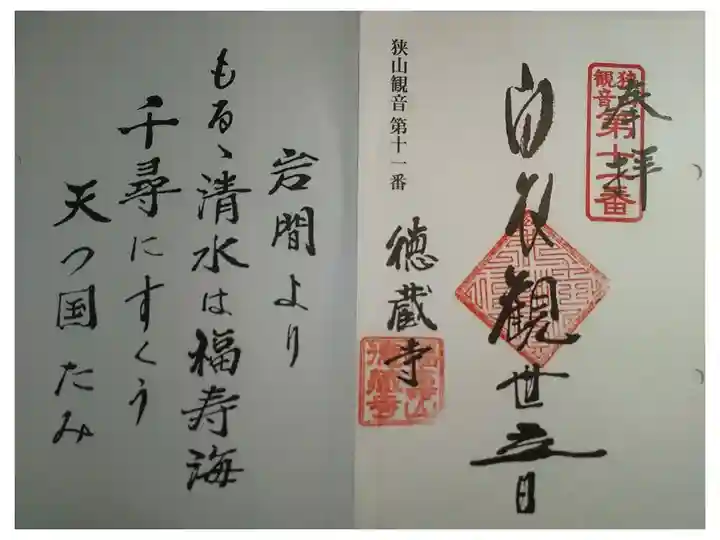 奉拝
狭山
観音
第十一番
白衣観世音
狭山観音 第十一番
徳蔵寺
岩間より
もるゝ清水は福寿海
千尋にすくう
天つ国たみ